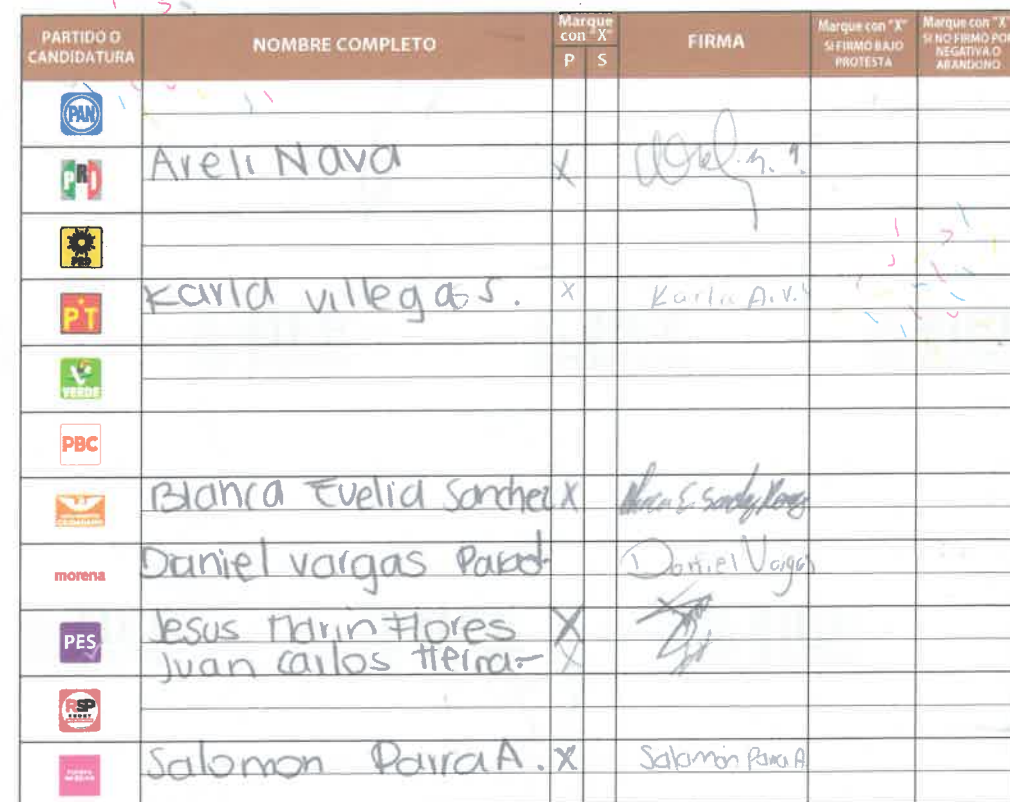 PARTIDO O CANDIDATURA
NOMBRE COMPLETO
Marque con "X"
P S
FIRMA
Marque con "X" SI FIRMO BAJO PROTESTA
Marque con "X" SI NO FIRMO POR NEGATIVA O ABANDONO
PAN
PRI Areli Nava X
PRD
PT Karla Villegas S. X Karla A.V.
VERDE
PBC
CIUDADANO Blanca Evelia Sanchez X
morena Daniel Vargas Daniel Vargas
PES Jesus Marin Flores X
Juan Carlos X
RSP
Salomon Parra A. X Salomon Parra A